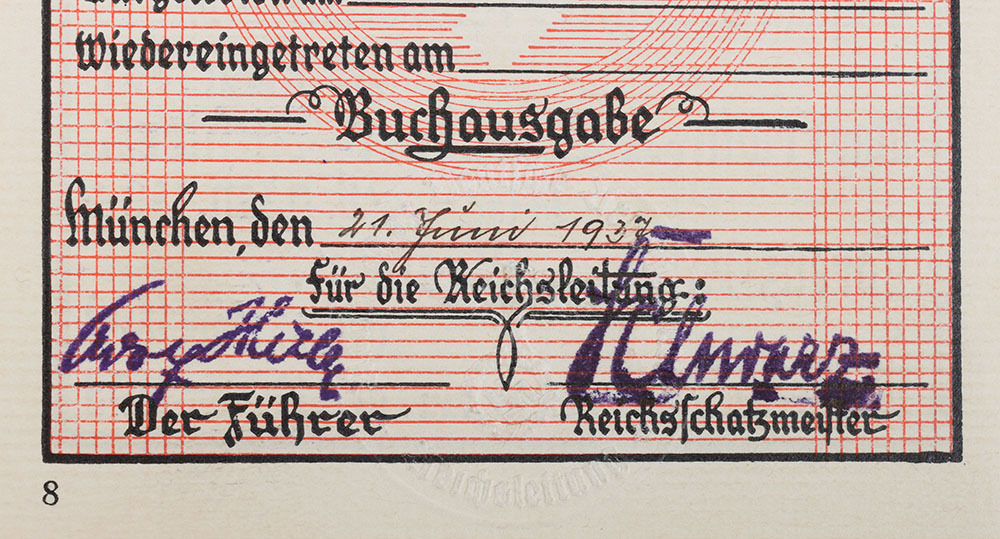 Wiedereingetreten am
Buchausgabe
München, den 21. Juni 1937
Für die Reichsleitung:
Schwarz
Der Führer Reichsschatzmeister
8